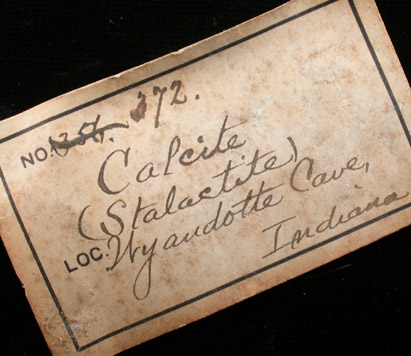 NO. 356. 372.
Calcite
(Stalactite)
LOC. Wyandotte Cave,
Indiana